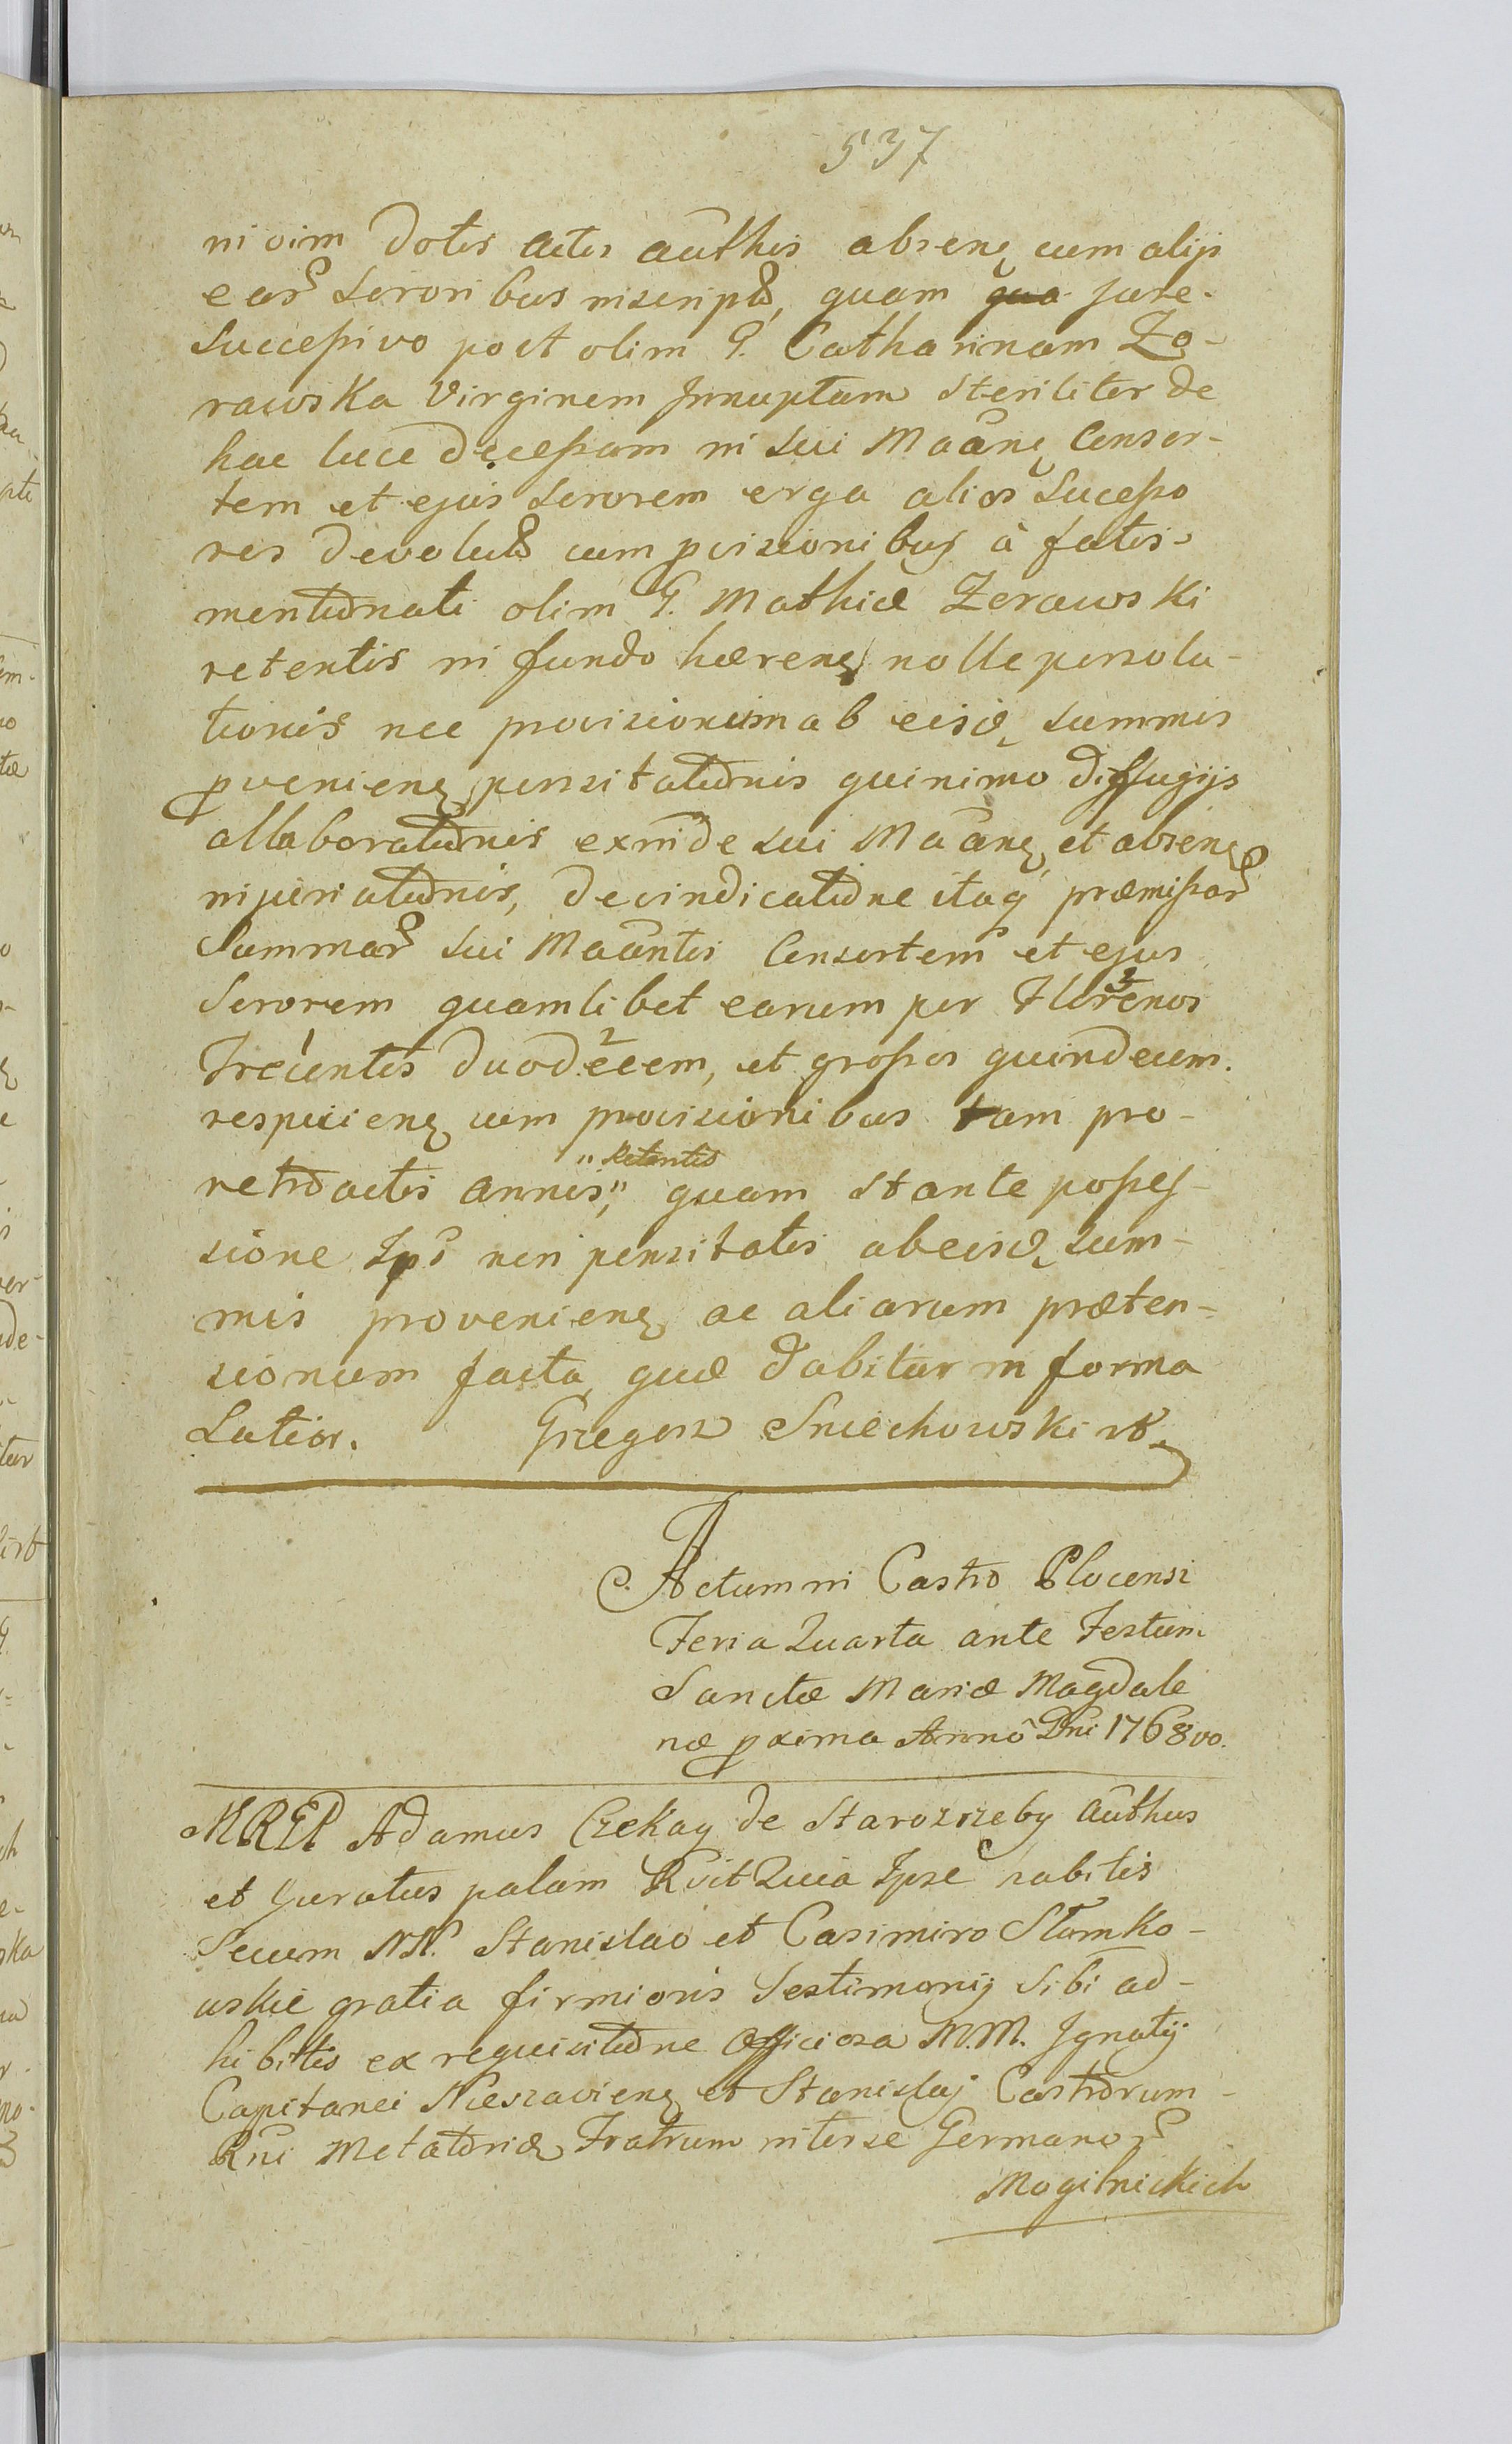 537
in vim Dotis actis authis absenꝫ cum alijs
earꝭ Sororibus inscriptꝭ, quam jure
Successivo post olim G. Catharinam Zo-
rawska Virginem Innuptam Steriliter de
hac luce decessam in Sui Maanꝫ Consor-
tem et ejus Sororem erga alios Successo
res devolutꝭ cum pvisionibus à fatis
mentionati olim G. Mathiæ Zerawski
retentis in fundo hærenꝫ nolle persolu-
tionis nec provisionum ab eisdꝫ Summis
pvenienꝫ pensitationis quinimo diffugijs
allaborationis exinde sui Maanꝫ et absenꝫ
injuriationis, de vindicatione itaq præmissarꝭ
Summarꝭ sui Maantis Consortem et ejus
Sororem quamlibet earum per Florenos
Trecentis duodecem, et grossos quindecem
respicienꝫ cum provisionibus tam pro
retroactis annis,, ,,Retentis quam stante posses-
sione Ips non pensitatis ab eisdꝫ Sum-
mis provenienꝫ ac aliarum præten-
sionum facta, quæ dabitur in forma
Latior. Grzegorz Sniechowski
Actum in Castro Plocensi
Feria Quarta ante Festum
Sanctæ Mariæ Magdale
næ pxima Anno Dni 1768vo.
MRGP Adamus Czekay de Starozrzeby authus
et Juratus palam Rvit Quia Ipse habitis
Secum NN. Stanislao et Casimiro Slomko-
wskie gratia firmioris Testimonij Sibi ad-
hibitis ex requisitione Officiosa M.M. Ignatij
Capitanei Nieszavienꝫ et Stanislaj Castrorum
Rni Metatoris Fratrum interse Germanorꝭ
Mogilnickich